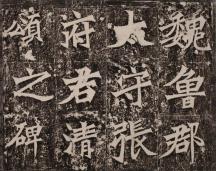 魏魯郡
太守張
府君清
頌之碑